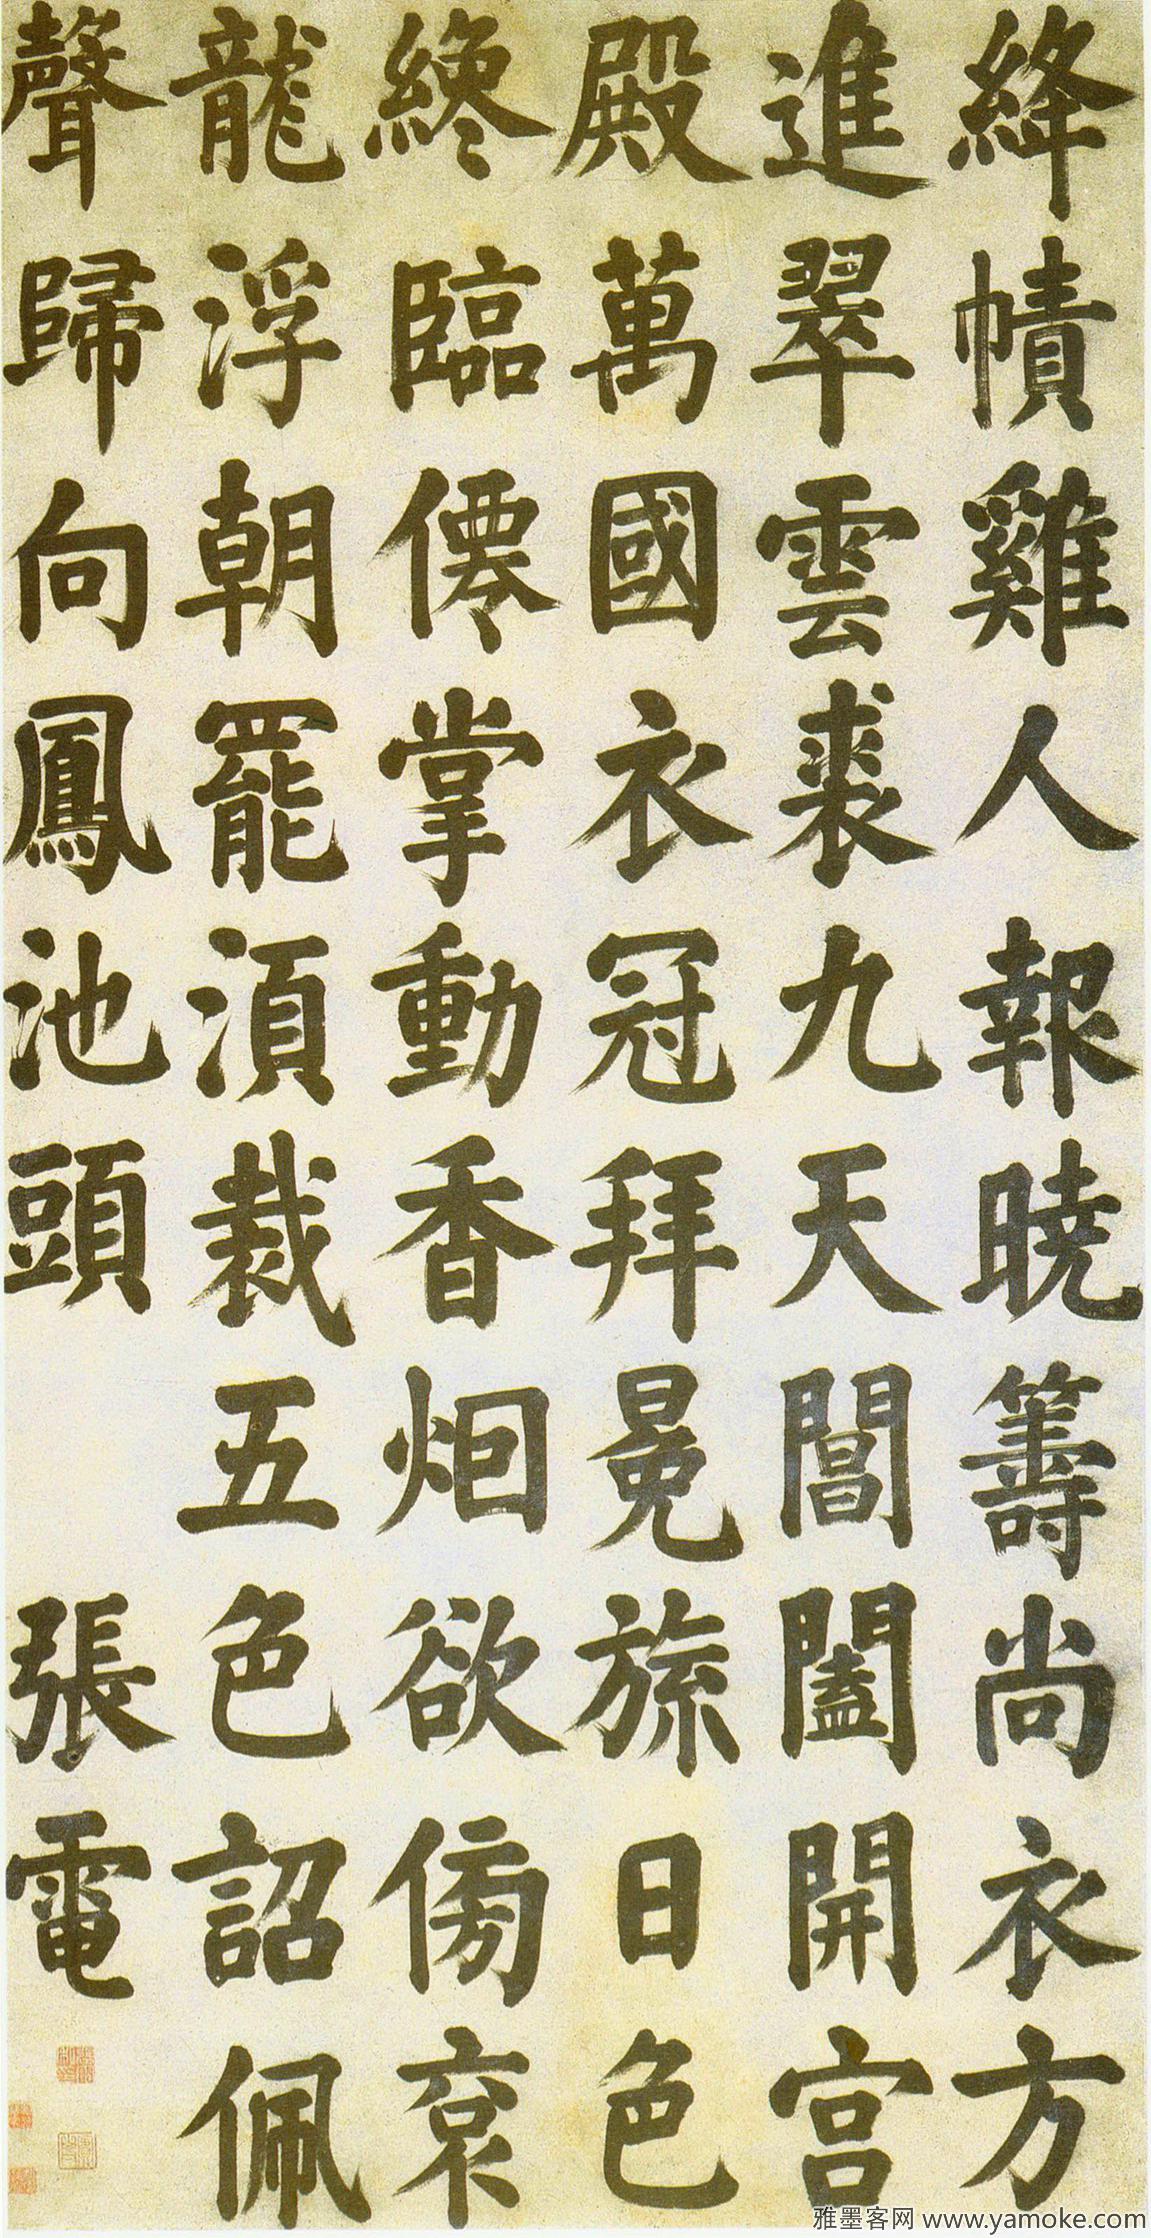 絳幘雞人報曉籌尚衣方
進翠雲裘九天閶闔開宫
殿萬國衣冠拜冕旒日色
纔臨僊掌動香烟欲傍衮
龍浮朝罷須裁五色詔佩
聲歸向鳳池頭 張電
雅墨客网 www.yamoke.com